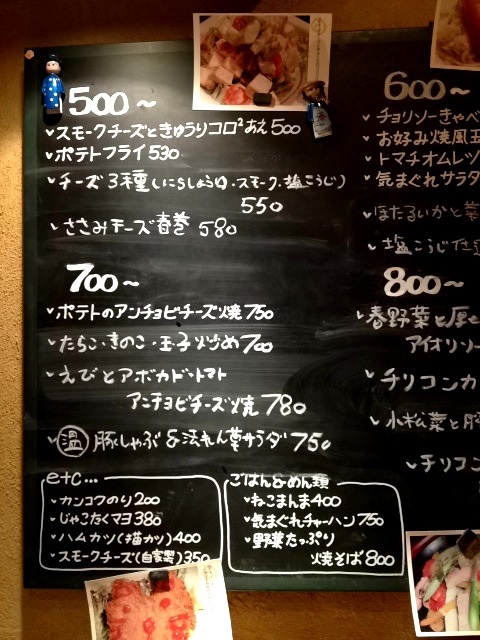 500~
スモークチーズときゅうりコロ²あえ 500
ポテトフライ 530
チーズ3種(いにしょうゆ・スモーク・塩こうじ)
550
ささみチーズ春巻 580
700~
ポテトのアンチョビチーズ焼 750
たらこ・きのこ・玉子炒め 700
えびとアボカド・トマト
アンチョビチーズ焼 780
温 豚しゃぶ&法れん草サラダ 750
etc...
カンコクのり 200
じゃこたくマヨ 380
ハムカツ(描カツ) 400
スモークチーズ(自家製) 350
ごはん&めん類
ねこまんま 400
気まぐれチャーハン 750
野菜たっぷり
焼そば 800
600~
チョリソーきゃべ
お好み焼風玉
トマチオムレツ
気まぐれサラダ
ほたるいかと菜
塩こうじ仕
800~
春野菜と厚
アイオリソー
チリコンカ
小松菜と豚
チリコン